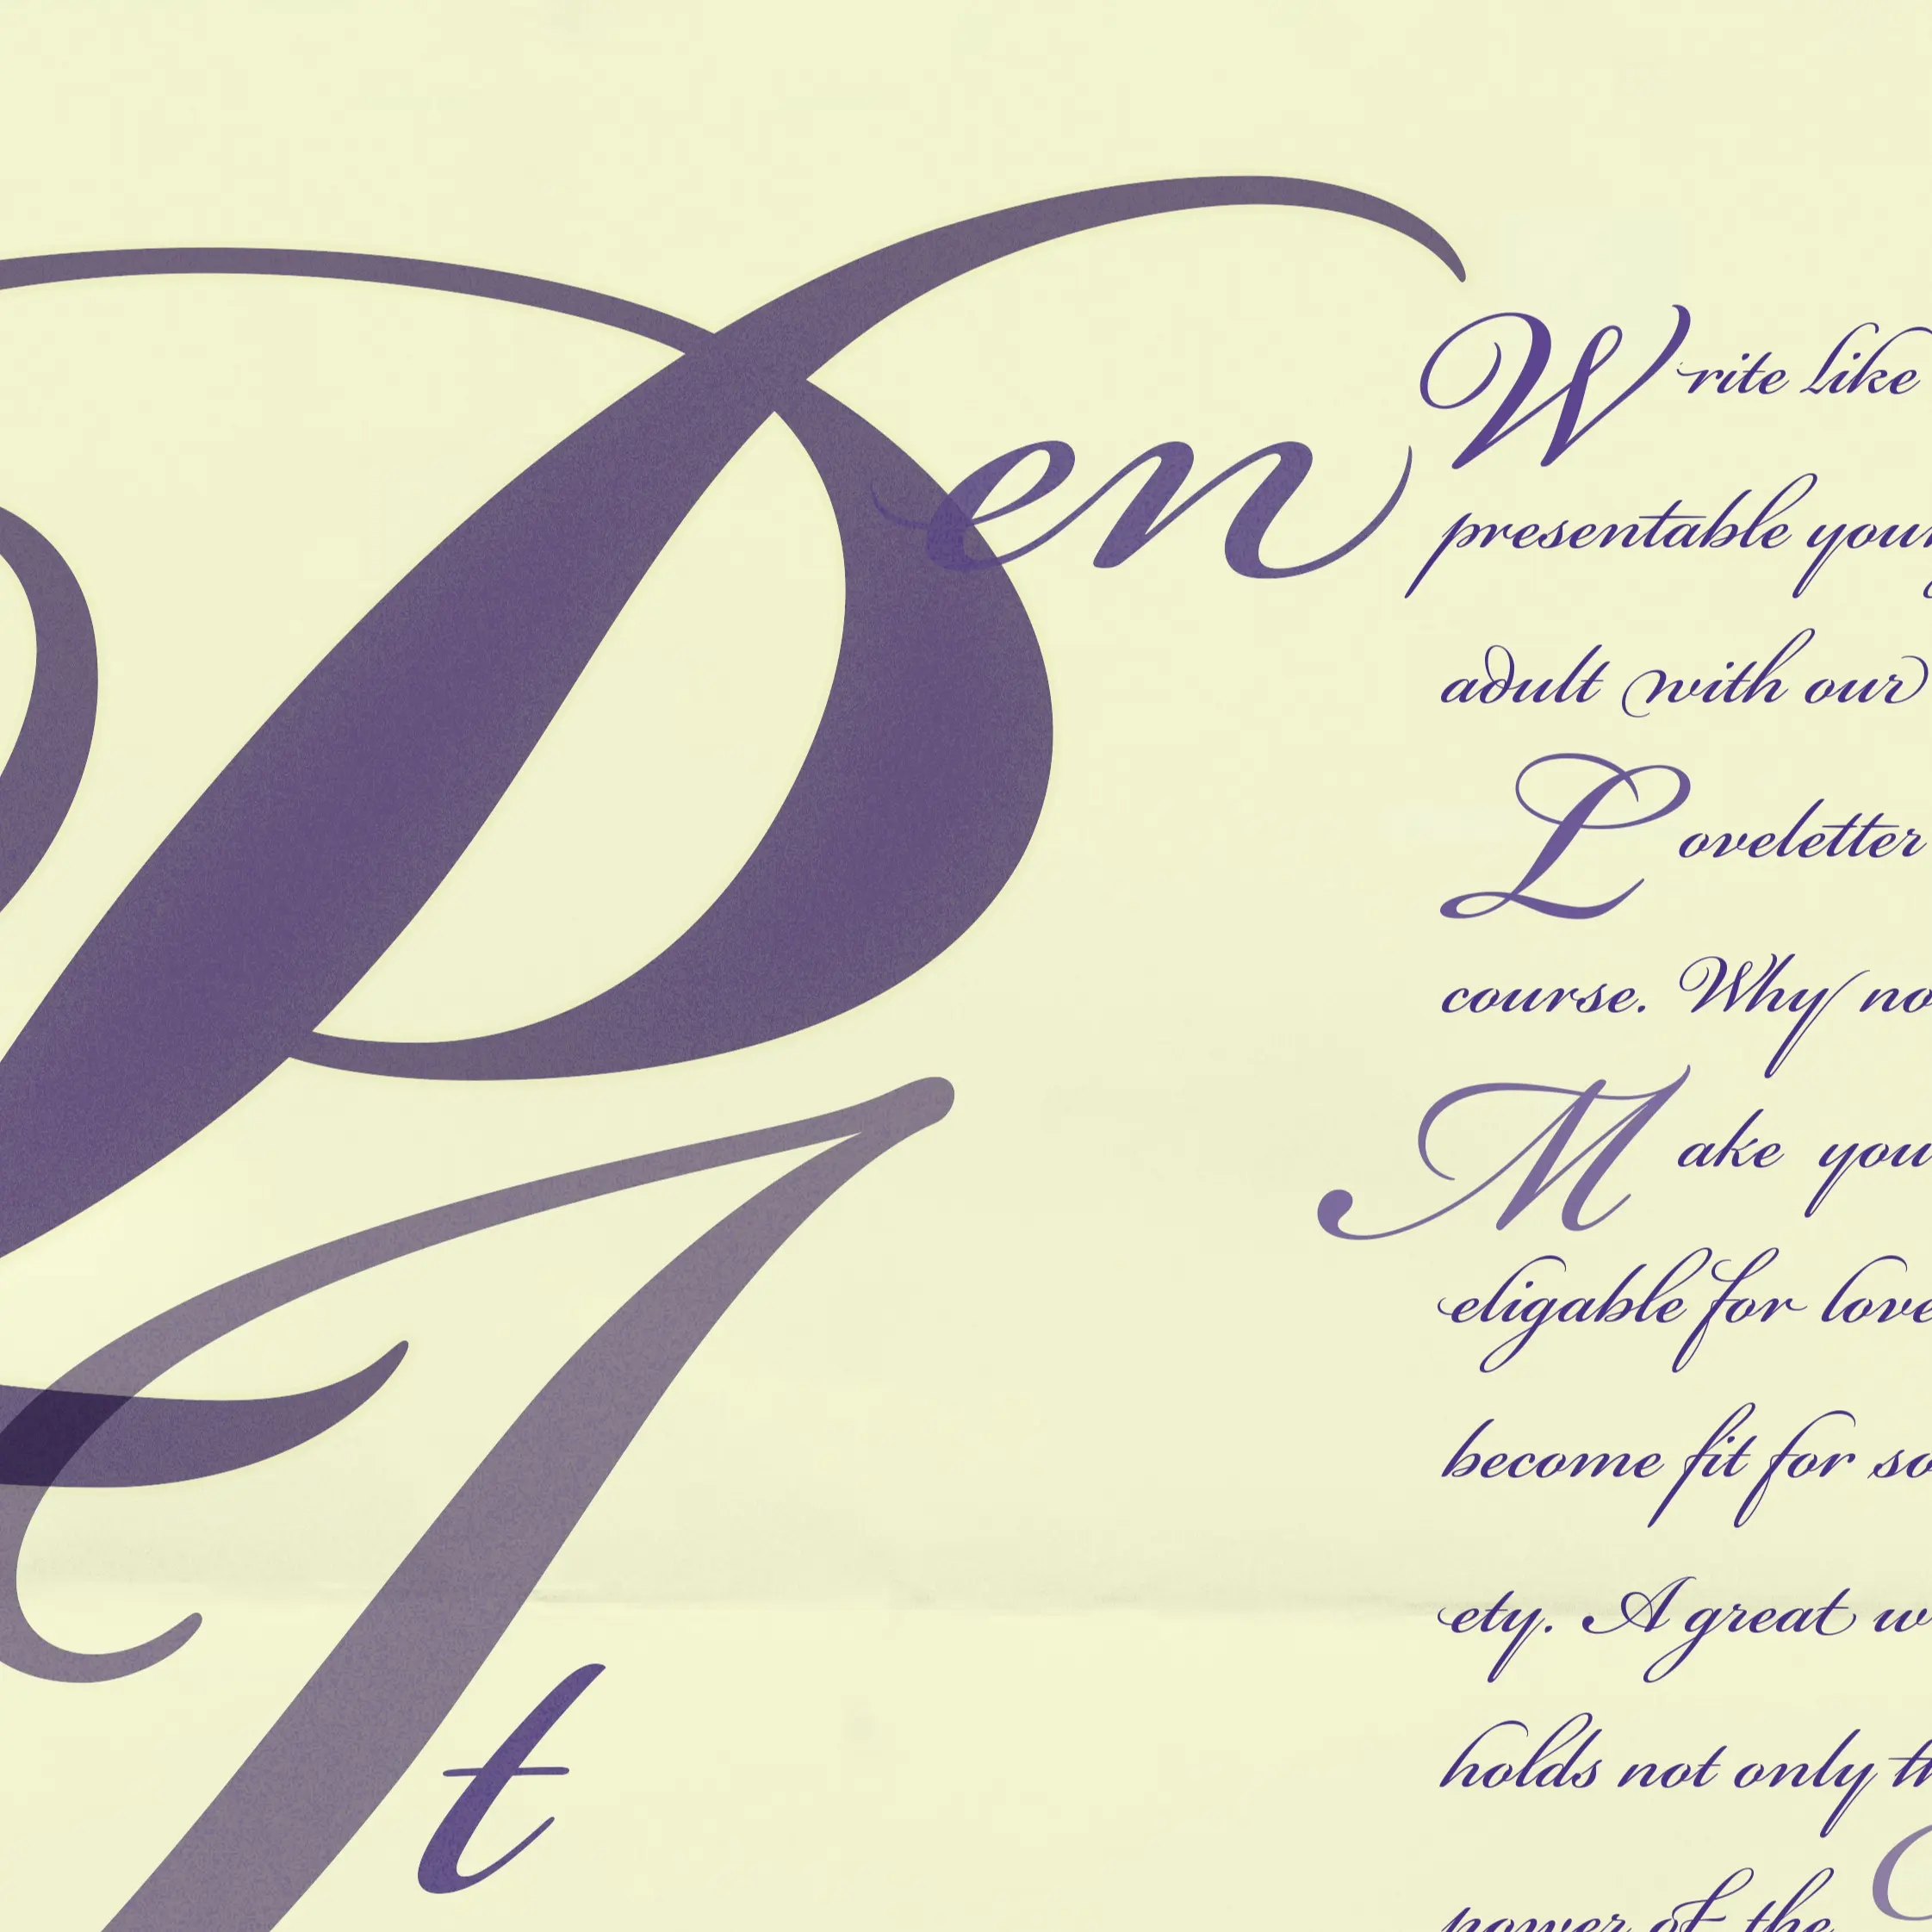 Pen
It
Write like
presentable your
adult with our
Loveletter
course. Why no
Make you
eligable for love
become fit for so
ety. A great w
holds not only th
power of the